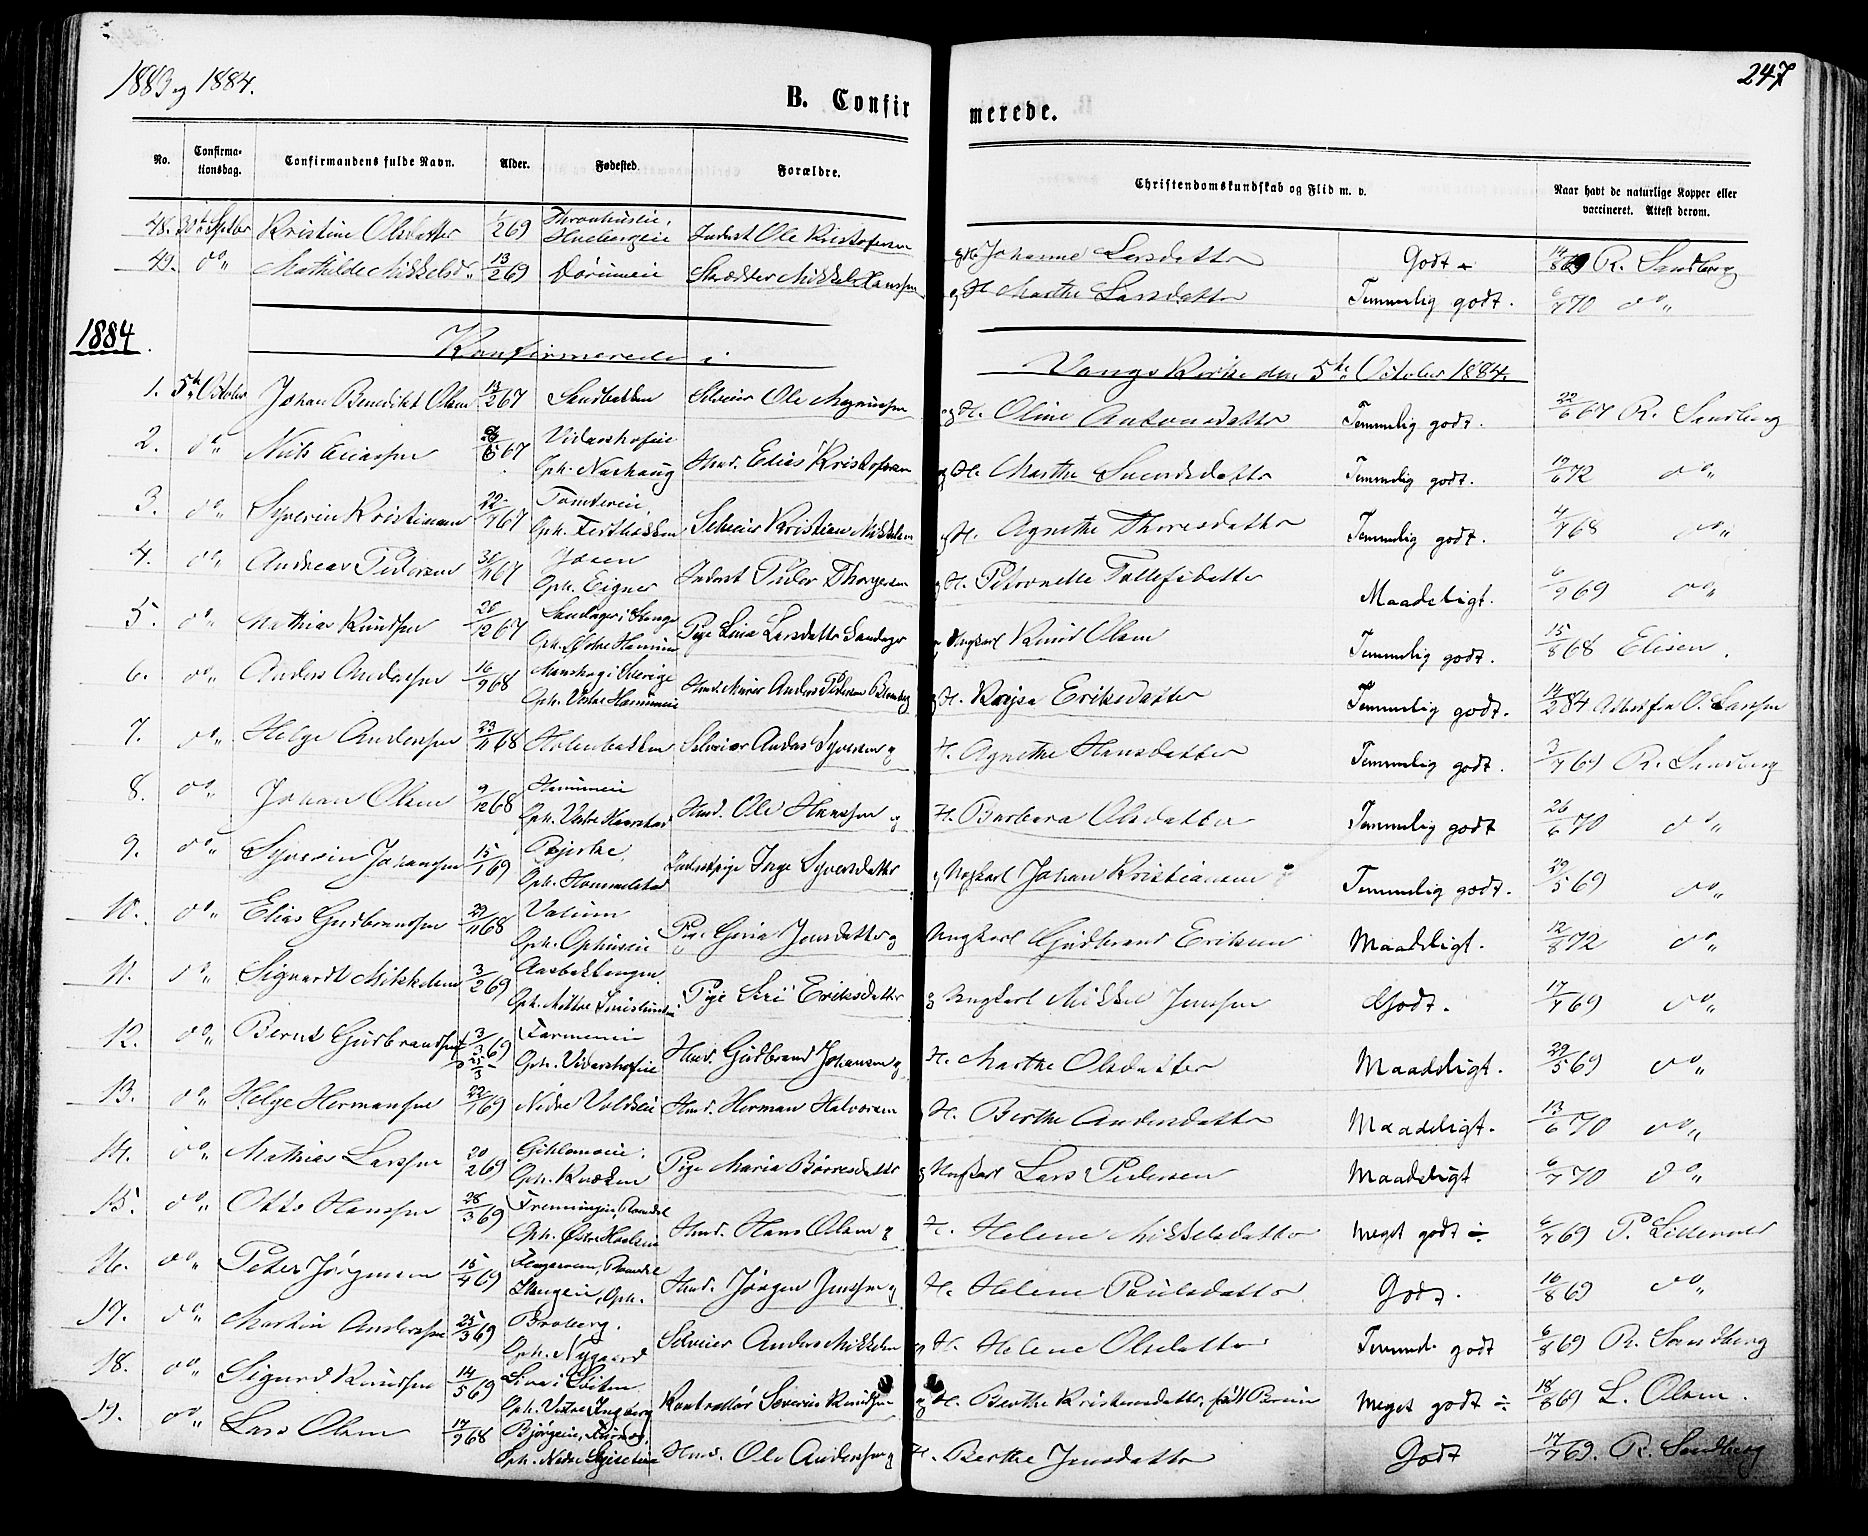 1883 og 1884.
247
B. Confirmerede.
No. Confirmationsdag. Confirmandens fulde Navn. Alder. Fødested. Forældre. Christendomskundskab og Flid m. v. Naar havt de naturlige Kopper eller vaccineret. Attest derom.
48. 30te Septbr Kristine Olsdatter 1/2 69 Indest Ole Kristofersen og H. Johanne Larsdatter Godt 14/8 69 R. Sandberg
49. do Mathilde Mikkelsd. 13/2 69 Skrædder Mikkel Hanssen og H. Marthe Larsdatter Temmelig godt. 6/7 70 do
1884. Konfirmerede i Vangs Kirke den 5te October 1884.
1. 5te October Johan Benedikt Olsen 13/2 67 Sandbakken Selveier Ole Magnussen og H. Oline Antonsdatter Temmelig godt. 22/6 67 R. Sandberg
2. do Nils Eliassen 67 Vidarshofeie Oph. Narhaug Husmd. Elias Kristofersen og H. Marthe Svendsdatter Temmelig godt. 19/6 72 do
3. do Syverin Kristiansen 22/7 67 Oph. Selveier Kristian Mikkelsen og H. Agnethe Thoresdatter Temmelig godt. 4/7 68 do
4. do Andreas Pedersen 67 Josen Oph. Eigner Indest Peder Thorgersen og H. Petronelle Tollefsdatter Maadeligt. 6/9 69 do
5. do Mathias Knudsen 20/12 67 Sandager i Stange Oph. Østre Hammer Pige Lina Larsdatter Sandager og Ungkarl Knud Olsen Temmelig godt. 15/8 68 Elisen.
6. do Anders Anderssen 16/9 68 i Sverige Oph. Vestre Hammereie Anders Pedersen og H. Kajsa Eriksdatter Temmelig godt. 14/2 84 O. Larssen
7. do Helge Anderssen 23/11 68 Holenbakken Selveier Anders Syversen og H. Agnethe Hansdatter Temmelig godt. 3/7 69 R. Sandberg
8. do Johan Olsen 9/12 68 Hammereie Oph. Vestre Husmd. Ole Hanssen og H. Barbara Olsdatter Temmelig godt 26/6 70 do
9. do Syverin Johanssen 15/1 69 Bjerke, Oph. Hommelstad Inderstpige Inge Syversdatter og Ungkarl Johan Kristiansen Temmelig godt. 29/5 69 do
10. do Elias Gudbrandsen 29/11 68 Valum Oph. Ophuseie Pige Gina Jensdatter og Ungkarl Gudbrand Eriksen Maadeligt. 12/8 72 do
11. do Siguardt Mikkelsen 3/2 69 Aasbakkengen Oph. Pige Siri Eriksdatter og Ungkarl Mikkel Jenssen Godt. 17/7 69 do
12. do Bernt Gudbrandsen 3/3 69 Farmeneie Oph. Vidarshofeie Husmd. Gudbrand Johansen og H. Marthe Olsdatter Maadeligt. 29/5 69 do
13. do Helge Hermansen 22/1 69 Nedre Voldseie Husmd. Herman Halvorsen og H. Berthe Andersdatter Maadeligt. 13/6 70 do
14. do Mathias Larssen 20/2 69 Oph. Kvæken Pige Maria Børresdatter og Ungkarl Lars Pedersen Maadeligt 6/7 70 do
15. do Otto Hanssen 28/3 69 Romedal Oph. Østre Husmd. Hans Olsen og H. Helene Mikkelsdatter Meget godt ÷ 6/7 69 P. Lillevold
16. do Peter Jørgensen 15/4 69 Romedal Oph. Husmd. Jørgen Jenssen og H. Helene Paulsdatter Godt. 10/8 69 do
17. do Martin Anderssen 25/3 69 Broberg. Oph. Nygaard Selveier Anders Mikkelsen og H. Helene Olsdatter Temmel. godt 6/8 69 R. Sandberg
18. do Sigurd Knudsen 14/5 69 Oph. Vestre Kontrollør Severin Knudsen og H. Berthe Kristensdatter, født Meget godt ÷ 18/8 69 L. Olsen.
19. do Lars Olsen 17/9 68 Oph. Nedre Husmd. Ole Anderssen og H. Berthe Jensdatter Godt 17/7 69. R. Sandberg